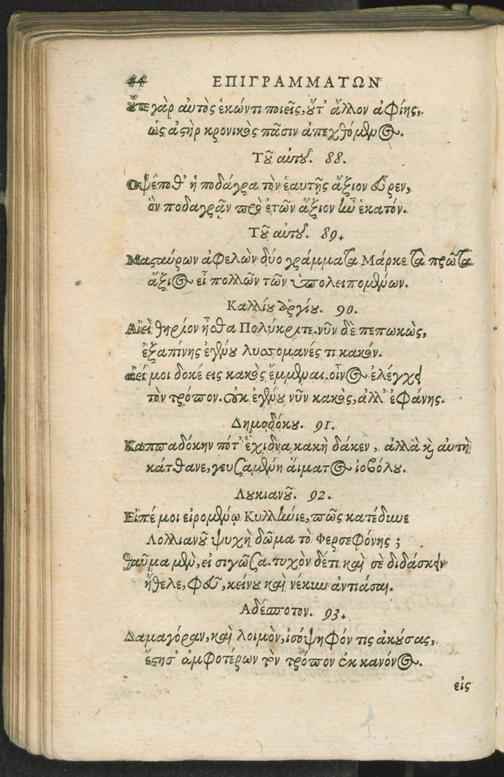 44 ΕΠΙΓΡΑΜΜΑΤΩΝ
ὔτε γὰρ αὐτὸς ἑκόντι ποιεῖς, ὔτ' ἄλλον ἀφίης,
ὡς ἀστὴρ κρονικὸς πᾶσιν ἀπεχθόμενος.
Τοῦ αὐτοῦ. 88.
Οψέ ποθ' ἡ ποδάγρα τὸν ἑαυτῆς ἄξιον εὗρεν,
ὃν ποδαγρᾶν πρὸ ἐτῶν ἄξιον ἦν ἑκατόν.
Τοῦ αὐτοῦ. 89.
Μασταύρων ἀφελὼν δύο γράμματα Μάρκε τὰ πρῶτα
ἄξιος εἶ πολλῶν τῶν ὑπολειπομένων.
Καλλίου Ἀργίου. 90.
Αἰεὶ θηρίον ἦσθα Πολύκριτε. νῦν δὲ πεπωκὼς,
ἐξαπίνης ἐγένου λυσσομανές τι κακόν.
ἀεί μοι δοκέεις κακὸς ἔμμεναι. οἶνος ἐλέγχει
τὸν τρόπον. οὐκ ἐγένου νῦν κακὸς, ἀλλ' ἐφάνης.
Δημοδόκου. 91.
Καππαδόκην πότ' ἔχιδνα κακὴ δάκεν, ἀλλὰ καὶ αὐτὴ
κάτθανε, γευσαμένη αἵματος ἰοβόλου.
Λυκιανοῦ. 92.
Εἰπέ μοι εἰρομένῳ Κυλλήνιε, πῶς κατέδυνε
Λολλιανοῦ ψυχὴ δῶμα τὸ Φερσεφόνης;
θαῦμα μὲν, εἰ σιγῶσα. τυχὸν δέ τι καὶ σὲ διδάσκειν
ἤθελε, φεῦ, κείνου καὶ νέκυν ἀντιάσαι.
Αδέσποτον. 93.
Δαμαγόραν, καὶ λοιμὸν, ἰσόψηφόν τις ἀκούσας,
ἔστησ' ἀμφοτέρων τὸν τρόπον ἐκ κανόνος.
εἰς